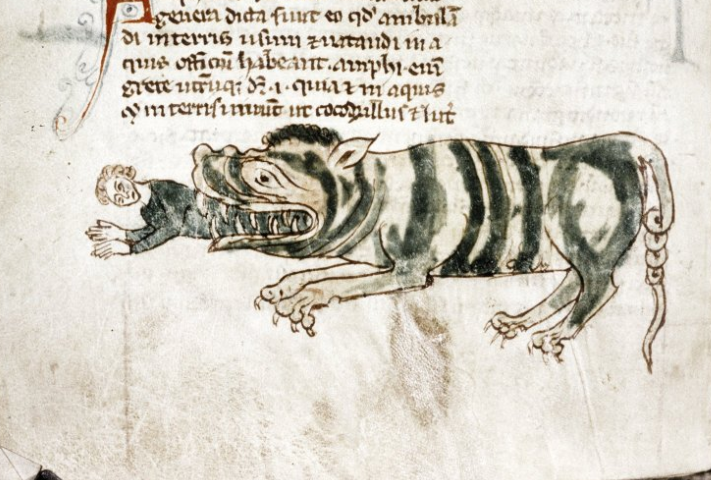 A
genera dicta sunt eo qd' ambulā
di in terris usum ⁊ natandi in a
quis officiū habeant. amphi enī
grece utrūq; dr̄. i. quia ⁊ in aquis
⁊ in terris uiuūt ut cocodrillus ⁊